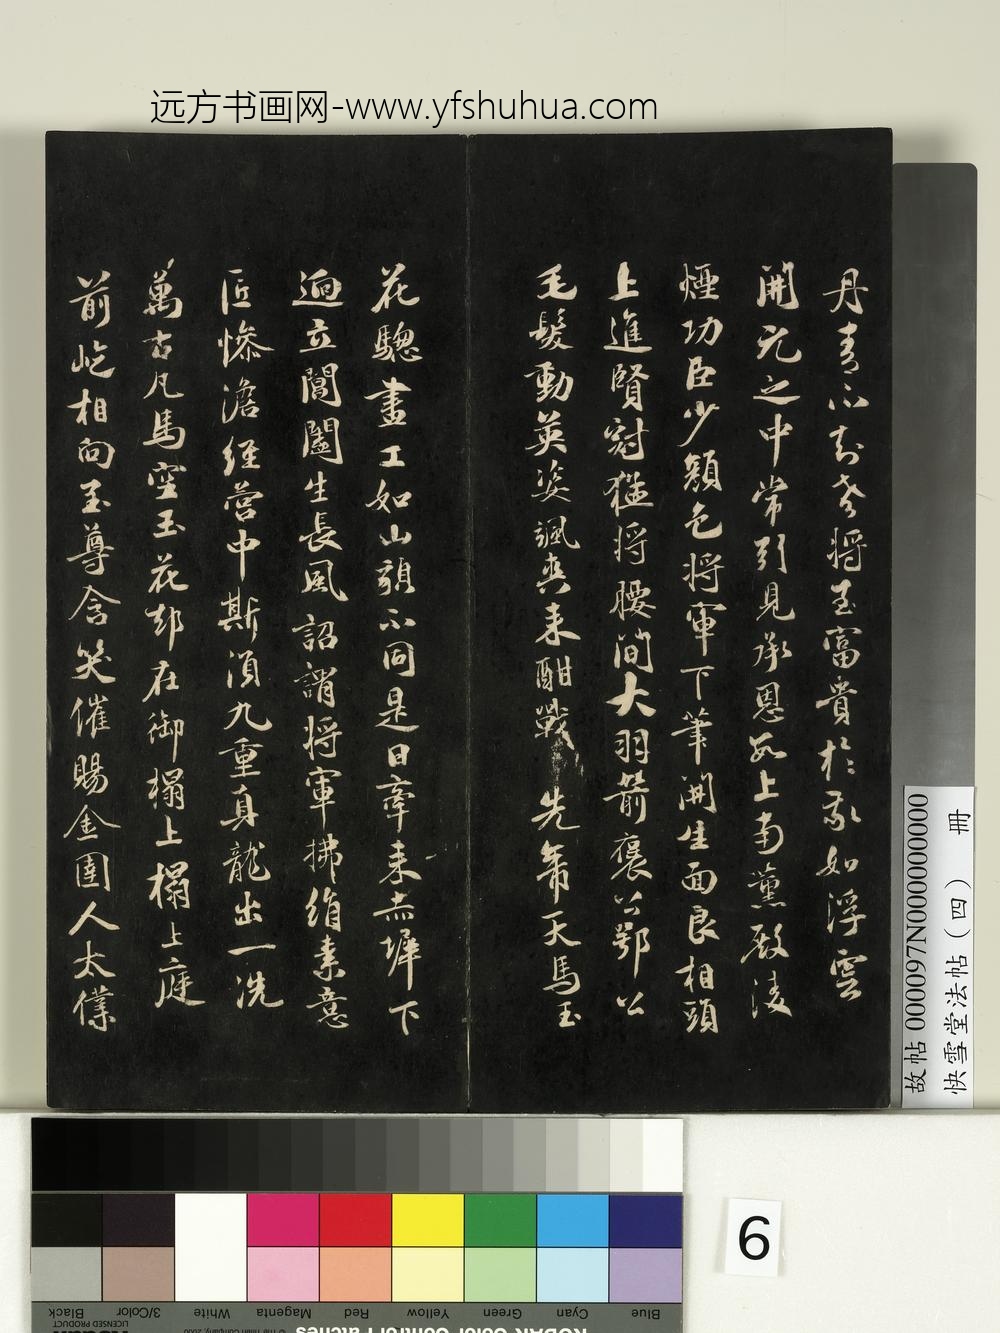 远方书画网-www.yfshuhua.com
丹青不知老将至富貴於我如浮雲
開元之中常引見承恩數上南薰殿淩
煙功臣少顏色将軍下筆開生面良相頭
上進賢冠猛将腰間大羽箭褒公鄂公
毛髮動英姿颯爽来酣戰先帝天馬玉
花驄畫工如山貌不同是日牽来赤墀下
迥立閶闔生長風詔謂将軍拂絹素意
匠慘澹經營中斯須九重真龍出一洗
萬古凡馬空玉花却在御榻上榻上庭
前屹相向至尊含笑催賜金圉人太僕
故帖000097N000000000
快雪堂法帖（四） 冊
6
Black
3/Color
White
Magenta
Red
Yellow
Green
Cyan
Blue
LICENSED PRODUCT
© The Tiffen Company, 2000
KODAK Color Control Patches